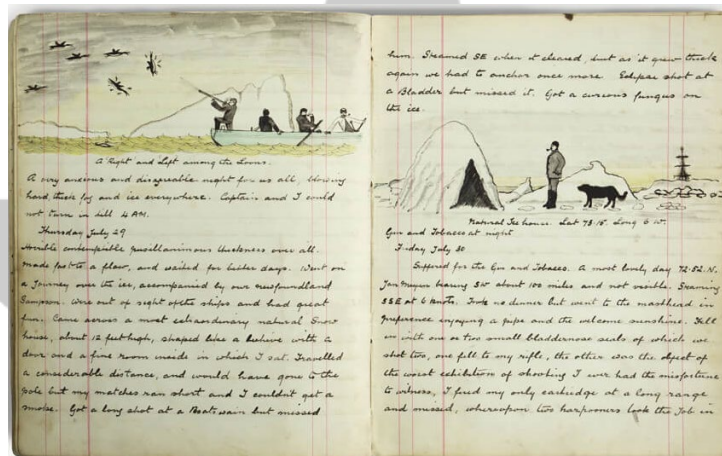 A "Right" and Left among the Loons.
A very anxious and disagreable night for us all, blowing
hard, thick fog and ice everywhere. Captain and I could
not turn in till 4 AM.
Thursday July 29
Horrible contemptible pusillanimous thickness over all.
Made fast to a floe, and waited for better days. Went on
a Journey over the ice, accompanied by our Newfoundland
Sampson. Were out of sight of the ships and had great
fun. Came across a most extraordinary natural Snow
house, about 12 feet high, shaped like a beehive with a
door and a fine room inside in which I sat. Travelled
a considerable distance, and would have gone to the
Pole but my matches ran short and I couldn't get a
smoke. Got a long shot at a Boatswain but missed
him. Steamed SE when it cleared, but as it grew thick
again we had to anchor once more. Eclipse shot at
a Bladder but missed it. Got a curious fungus on
the ice.
Natural Ice house. Lat 73.15. Long 6 W.
Gin and Tobacco at night
Friday July 30
Suffered for the Gin and Tobacco. A most lovely day 72.52.N.
Jan Meyen bearing SW about 100 miles and not visible. Steaming
SSE at 6 knots. Took no dinner but went to the masthead in
preference enjoying a pipe and the welcome sunshine. Fell
in with one or two small bladdernose seals of which we
shot two, one fell to my rifle, the other was the object of
the worst exhibition of shooting I ever had the misfortune
to witness, I fired my only cartridge at a long range
and missed, whereupon two harpooners took the Job in